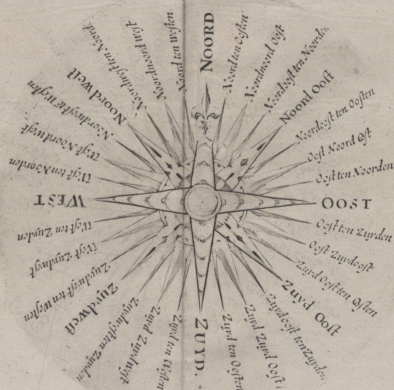 NOORD
Noord ten Oosten
Noordnoord Oost
Noordoost ten Noorden
Noord Oost
Noordoost ten Oosten
Oost Noord Ost
Oost ten Noorden
OOST
Oost ten Zurden
Oost-Zuydoost
Zuyd Oost ten Osten
Zuyd Oost
Zuydoost ten Zuyden
Zuyd Zuyd Oost
Zuyd ten Oosten
ZUYD.
Zuyd ten Westen
Zuyd Zuydwest
Zuydwesten Zurden
Zuydwest
Zuydwest ten Westen
West Zuydwest
West ten Zurden
WEST
West ten Noorden
West Noordwest
Noordweste Westen
Noordwest
Noordwesten Noord
Noordnoordwest
Noord ten Westen